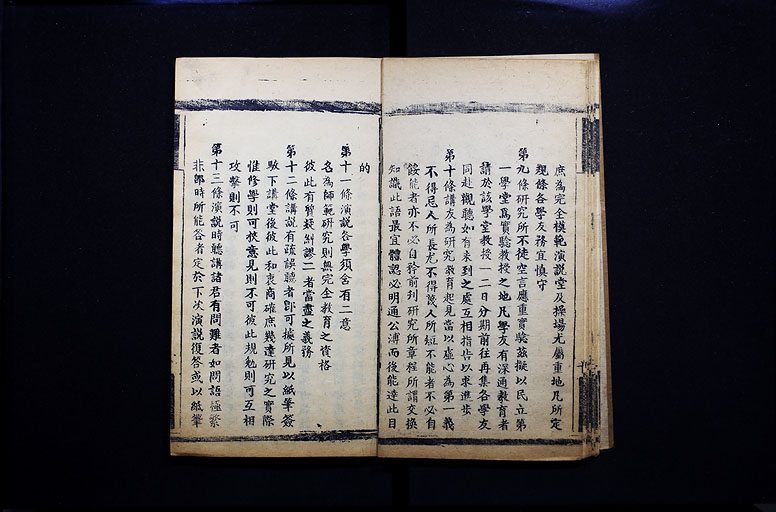 庶為完全模範演說堂及操場尤屬重地凡所定
規條各學友務宜慎守
第九條研究所不徒空言應重實驗茲擬以民立第
一學堂為實驗教授之地凡學友有深通教育者
請於該學堂教授一二日分期前往再集各學友
同赴觀聽如有未到之處互相指告以求進步
第十條講友為研究教育起見當以虛心為第一義
不得忌人所長尤不得譏人所短不能者不必自
餒能者亦不必自矜前列研究所章程所謂交換
知識此語最宜體認必明通公溥而後能達此目
的
第十一條演說各學須含有二意
名為師範研究則無完全教育之資格
彼此有質疑糾謬二者當盡之義務
第十二條講說有疏誤聽者卽可據所見以紙筆簽
駁下講堂後彼此和衷商確庶幾達研究之實際
惟修學則可挾意見則不可彼此規勉則可互相
攻擊則不可
第十三條演說時聽講諸君有問難者如問語極繁
非卽時所能答者定於下次演說復答或以紙筆